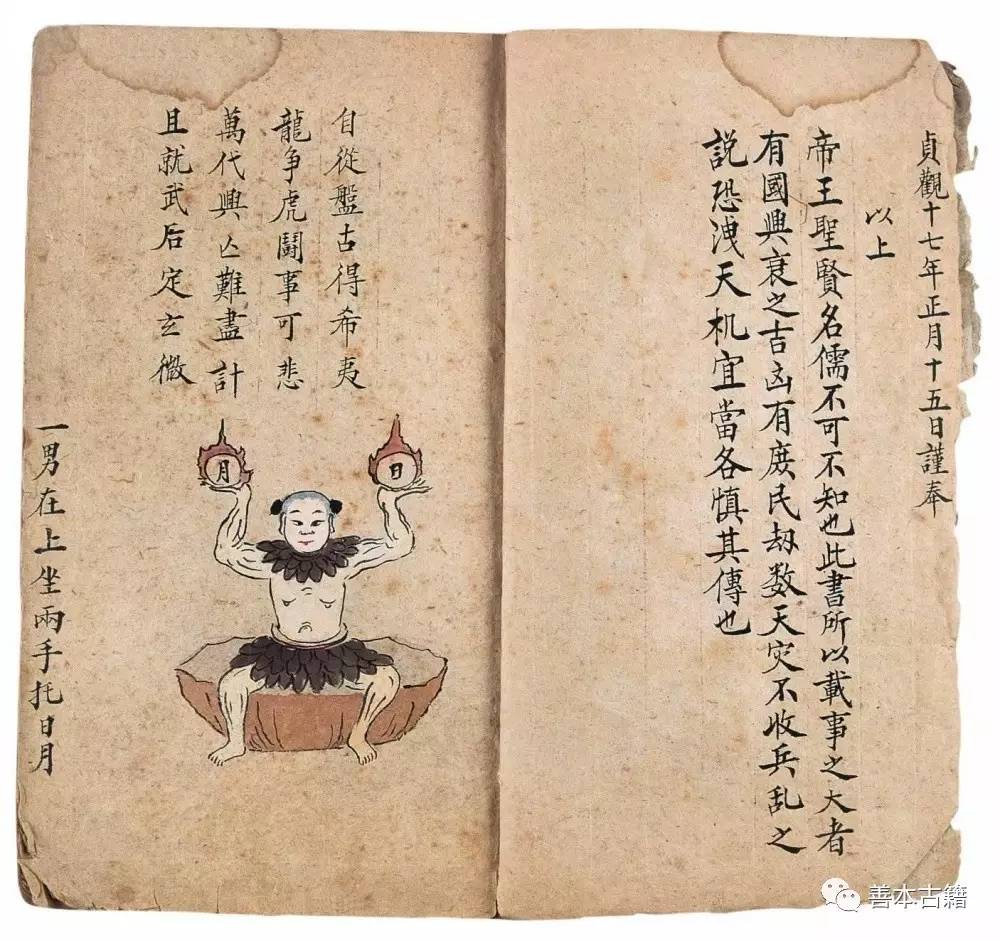 貞觀十七年正月十五日謹奉
以上
帝王聖賢名儒不可不知也此書所以載事之大者
有國興衰之吉凶有庶民劫数天灾不收兵乱之
説恐洩天机宜當各慎其傳也
自從盤古得希夷
龍争虎鬪事可悲
萬代興亡難盡計
且就武后定玄微
月
日
一男在上坐兩手托日月
善本古籍